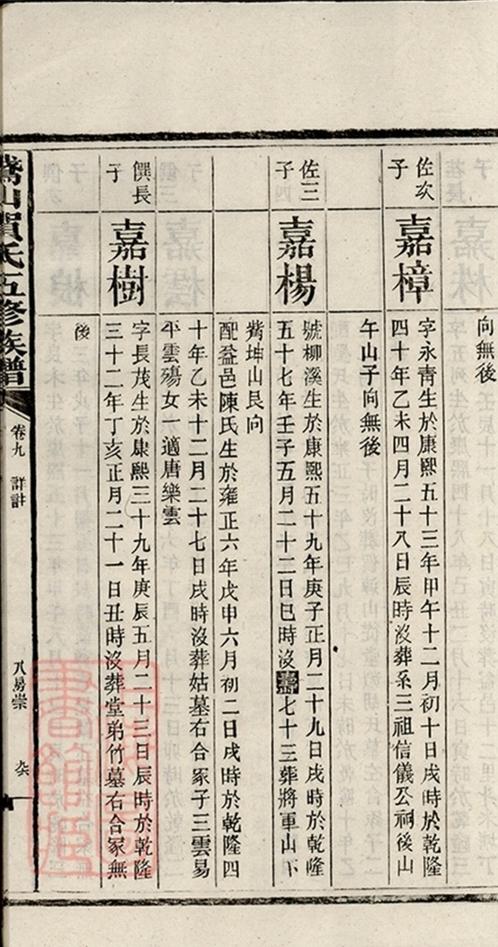 向無後
佐次子
嘉樟
字永青生於康熙五十三年甲午十二月初十日戌時於乾隆
四十年乙未四月二十八日辰時沒葬系三祖信儀公祠後山
午山子向無後
佐三子
嘉楊
號柳溪生於康熙五十九年庚子正月二十九日戌時於乾隆
五十七年壬子五月二十二日巳時沒壽七十三葬將軍山下
觜坤山艮向
配益邑陳氏生於雍正六年戊申六月初二日戌時於乾隆四
十年乙未十二月二十七日戌時沒葬姑墓右合冢子三雲易
平雲殤女一適唐樂雲
僎長子
嘉樹
字長茂生於康熙三十九年庚辰五月二十三日辰時於乾隆
三十二年丁亥正月二十一日丑時沒葬堂弟竹墓右合冢無
後
賀氏五修族譜
卷九
詳註
八易崇